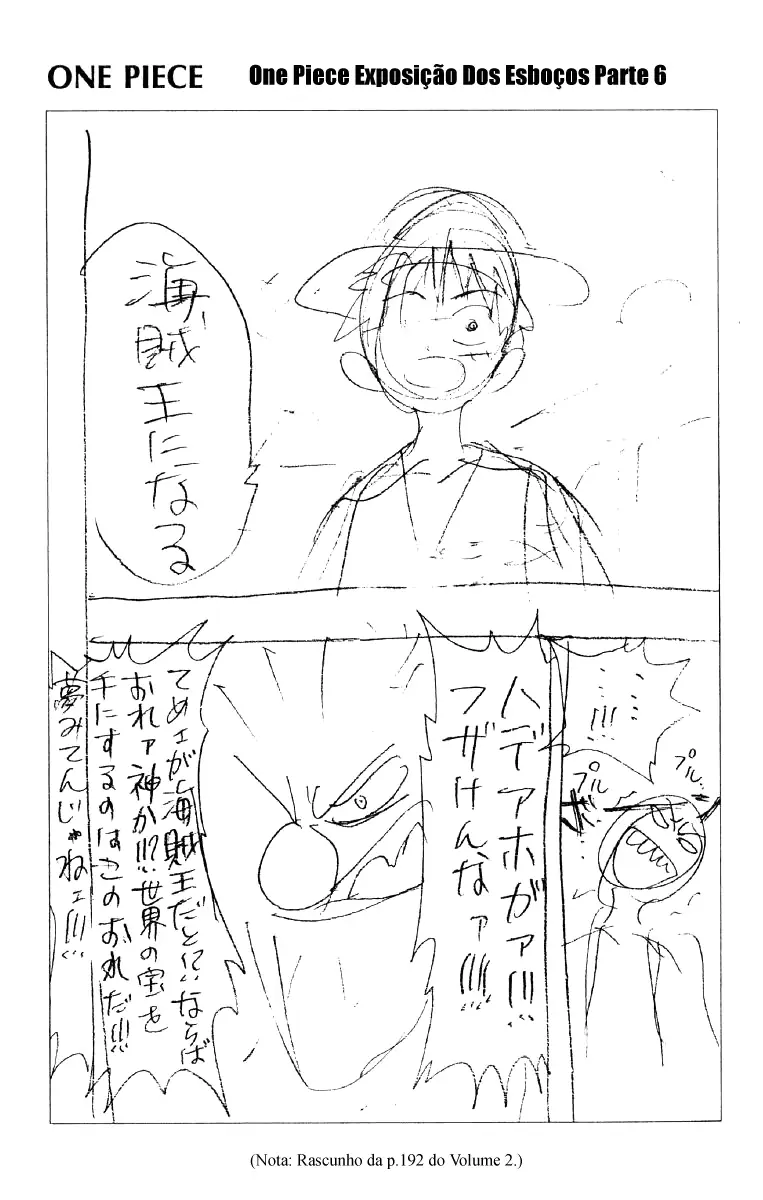 ONE PIECE
One Piece Exposição Dos Esboços Parte 6
海賊
王に
なる
……!!!
プル…
プル
ハデアホがァ!!!
フザけんなァ!!!!
てめェが海賊王だと!?ならば
おれァ神か!!?世界の宝を
手にするのはこのおれだ!!!
夢みてんじゃねェ!!!
(Nota: Rascunho da p.192 do Volume 2.)